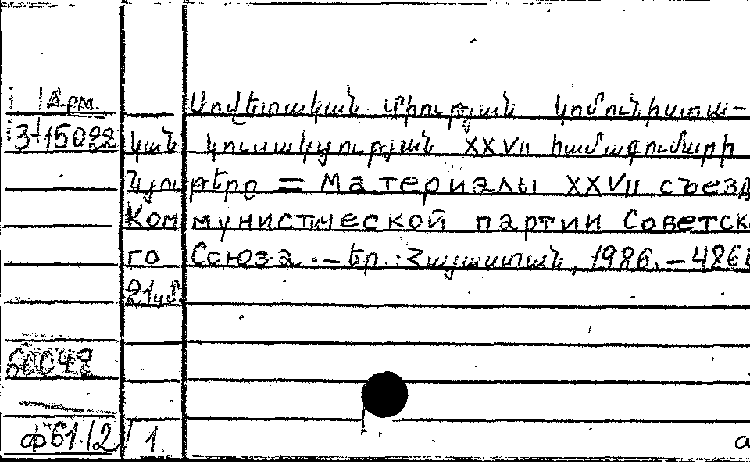 Арм.
Սովետական Միության կոմունիստա-
3-15022 կան կուսակցության XXVII համագումարի
նյութերը = Материалы XXVII съезд
Коммунистической партии Советск
го Союза. – Եր.: Հայաստան, 1986. – 486
21սմ.
60048
ф61/2 1. а